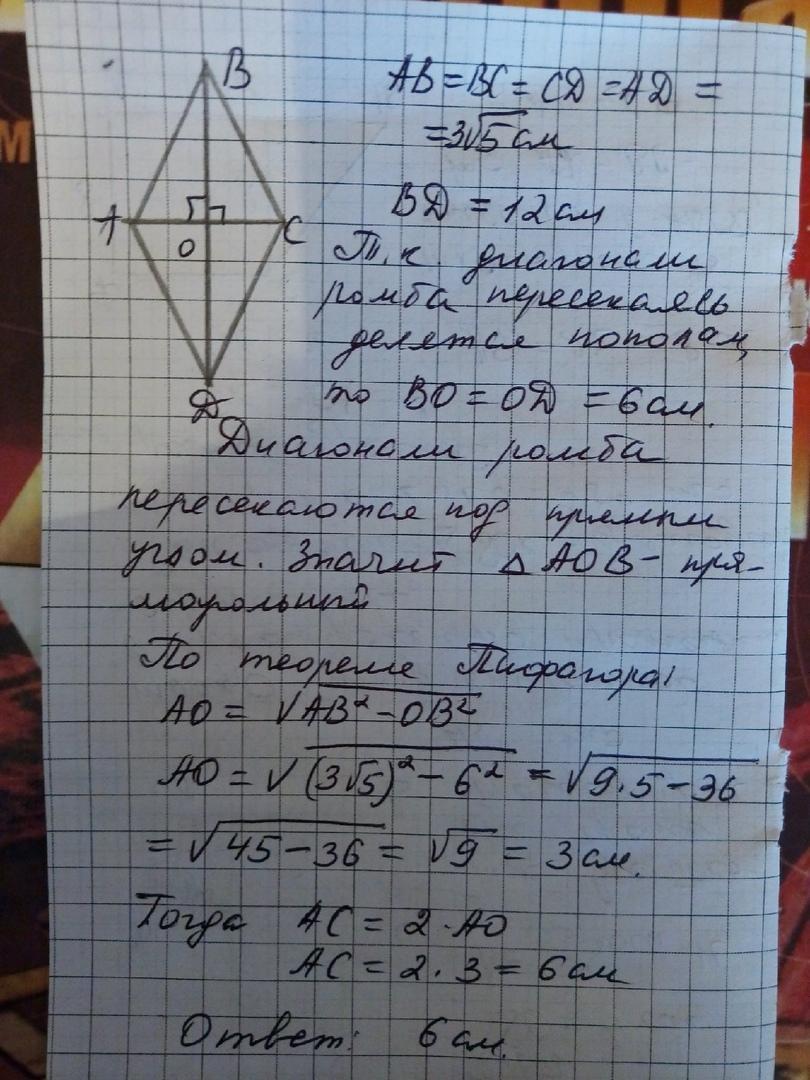 B
AB = BC = CD = AD =
= 3√5 см
BD = 12 см
A
C
O
Т.к. диагонали
ромба пересекаясь
делятся пополам,
D
то BO = OD = 6 см.
Диагонали ромба
пересекаются под прямым
углом. Значит △ AOB - пря-
моугольный
По теореме Пифагора:
AO = √AB² - OB²
AO = √(3√5)² - 6² = √9·5 - 36
= √45 - 36 = √9 = 3 см.
Тогда AC = 2·AO
AC = 2·3 = 6 см
Ответ: 6 см.